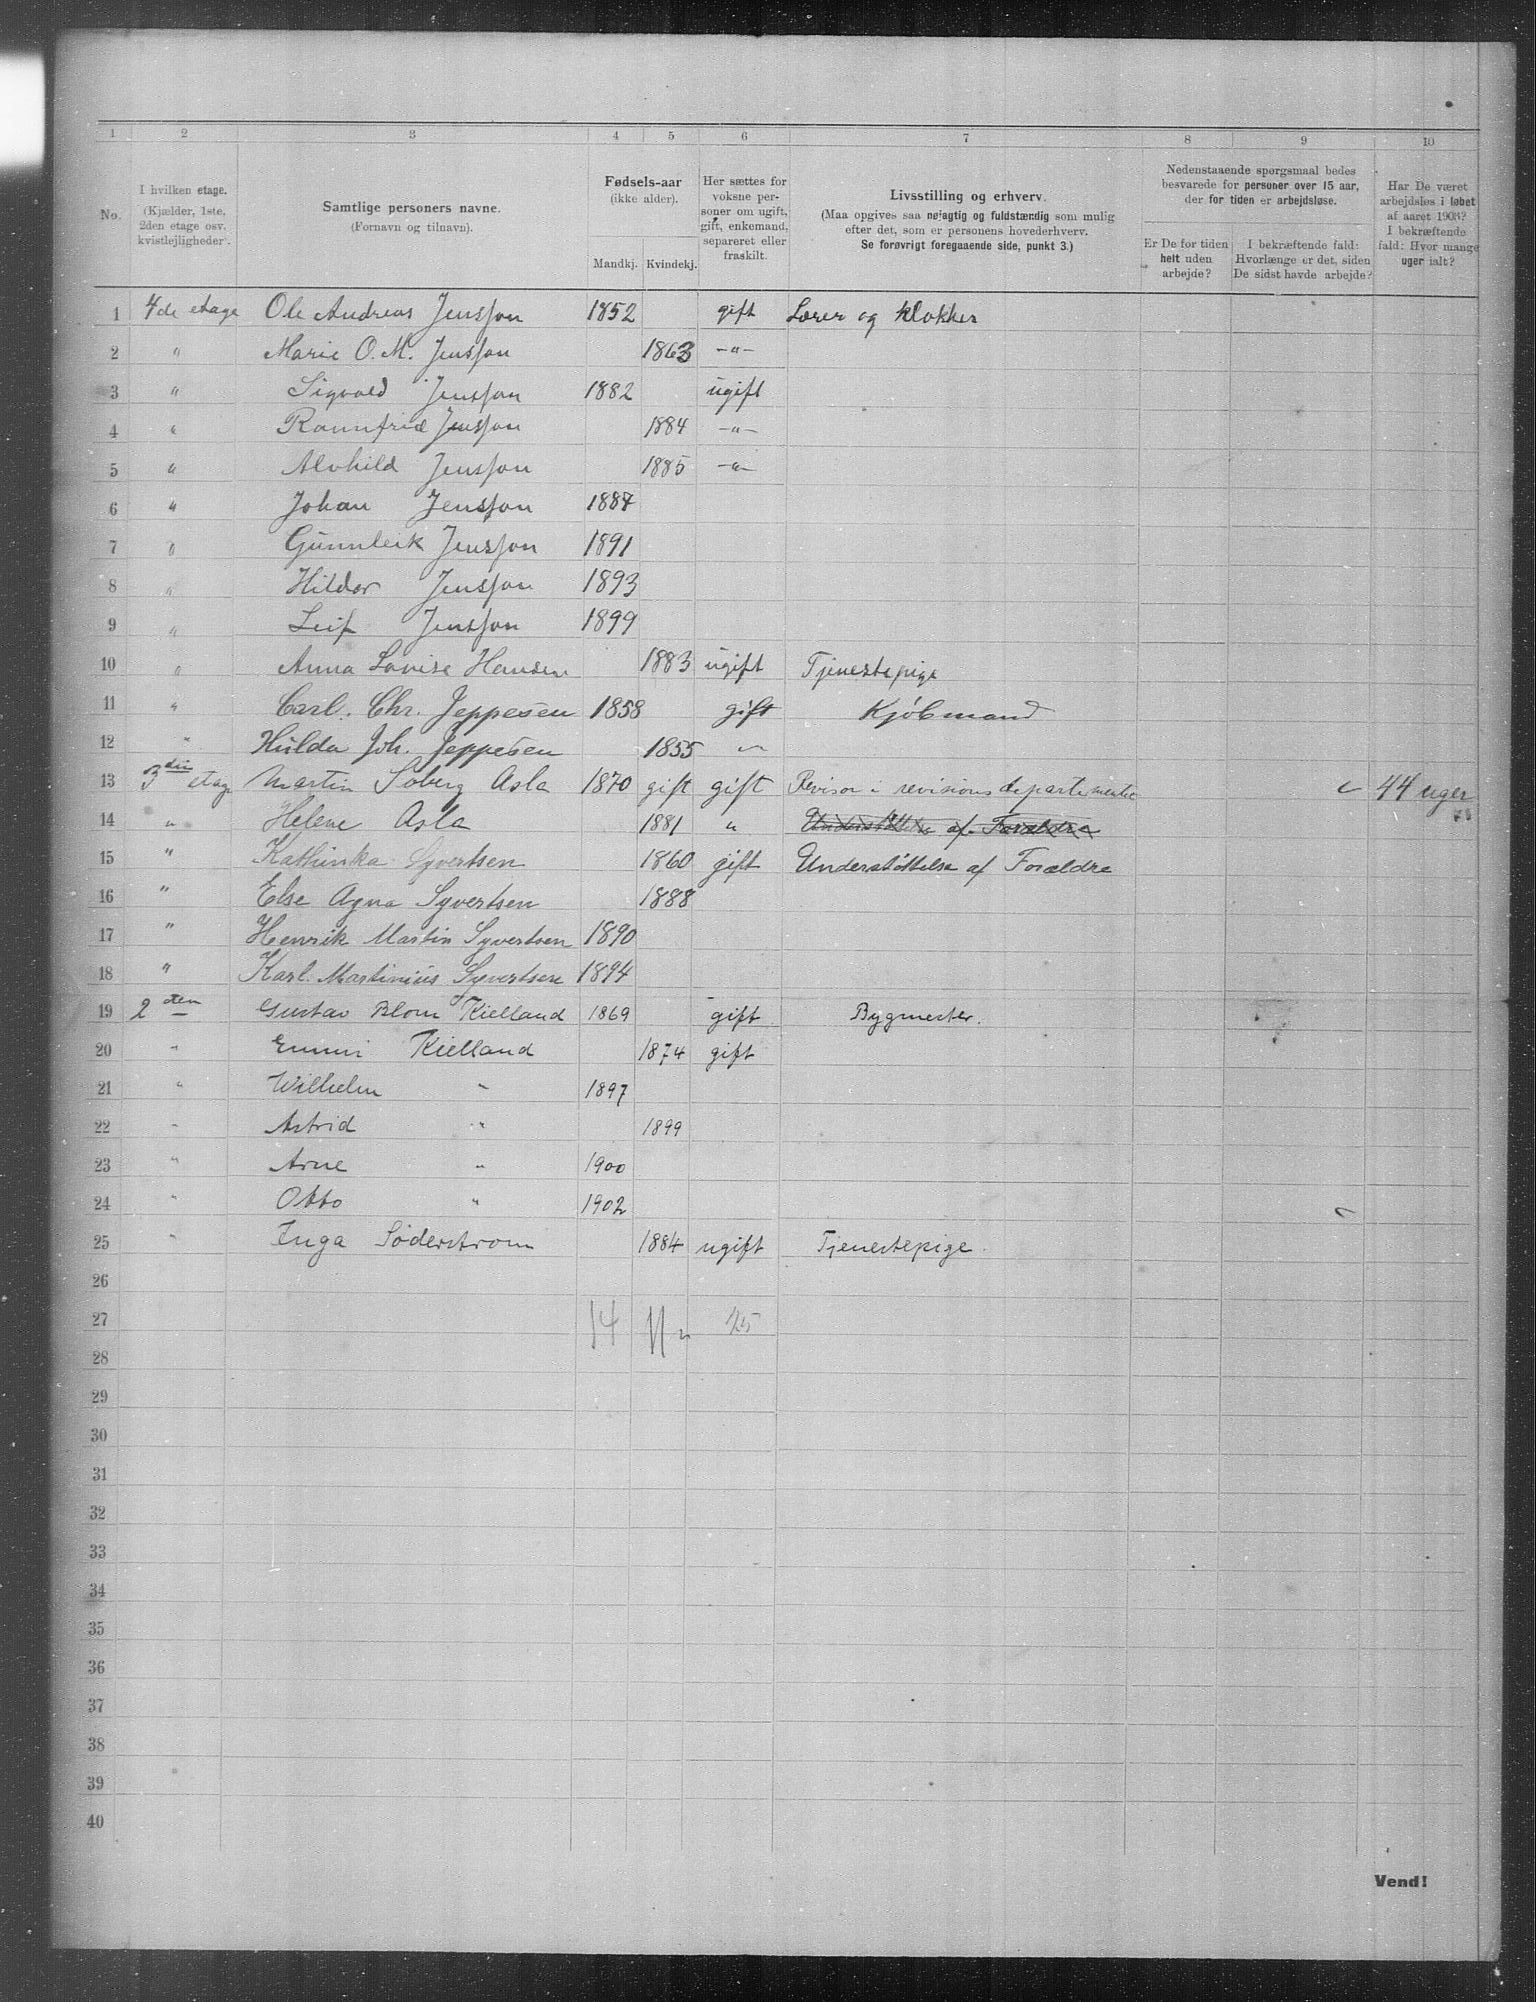 1 2 3 4 5 6 7 8 9 10
No.
I hvilken etage.
(Kjælder, 1ste,
2den etage osv.
kvistlejligheder).
Samtlige personers navne.
(Fornavn og tilnavn).
Fødsels-aar
(ikke alder).
Mandkj. Kvindekj.
Her sættes for
voksne per-
soner om ugift,
gift, enkemand,
separeret eller
fraskilt.
Livsstilling og erhverv.
(Maa opgives saa nøjagtig og fuldstændig som mulig
efter det, som er personens hovederhverv.
Se forøvrigt foregaaende side, punkt 3.)
Nedenstaaende spørgsmaal bedes
besvarede for personer over 15 aar,
der for tiden er arbejdsløse.
Er De for tiden
helt uden
arbejde?
I bekræftende fald:
Hvorlænge er det, siden
De sidst havde arbejde?
Har De været
arbejdsløs i løbet
af aaret 1903?
I bekræftende
fald: Hvor mange
uger ialt?
1 4de etage Ole Andreas Jensson 1852 gift Lærer og klokker
2 " Marie O. M. Jensson 1863 -"-
3 " Sigvald Jensson 1882 ugift
4 " Rannfrid Jensson 1884 -"-
5 " Alvhild Jensson 1885 -"-
6 " Johan Jensson 1887
7 " Gunnleik Jensson 1891
8 " Hildor Jensson 1893
9 " Leif Jensson 1899
10 " Anna Lovise Hansen 1883 ugift Tjenestepige
11 " Carl. Chr. Jeppesen 1858 gift Kjøbmand
12 " Hulda Joh. Jeppesen 1855 "
13 3die etage Martin Soberg Asla 1870 gift gift Revisor i revisions departementet 44 uger
14 " Helene Asla 1881 " Understøttelse af Forældre
15 " Kathinka Syvertsen 1860 gift Understøttelse af Forældre
16 " Else Agna Syvertsen 1888
17 " Henrik Martin Syvertsen 1890
18 " Karl. Martinius Syvertsen 1894
19 2den Gustav Blom Kielland 1869 gift Bygmester.
20 " Emmi Kielland 1874 gift
21 " Wilhelm " 1897
22 " Astrid " 1899
23 " Arne " 1900
24 " Otto " 1902
25 " Inga Söderstrom 1884 ugift Tjenestepige.
26
27 14 11 25
28
29
30
31
32
33
34
35
36
37
38
39
40
Vend!